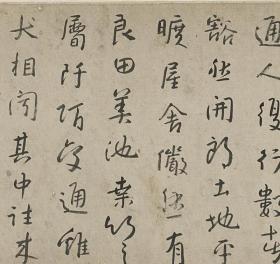 通人復行數十步
豁然開朗土地平
曠屋舍儼然有
良田美池桑竹之
屬阡陌交通雞
犬相聞其中往來